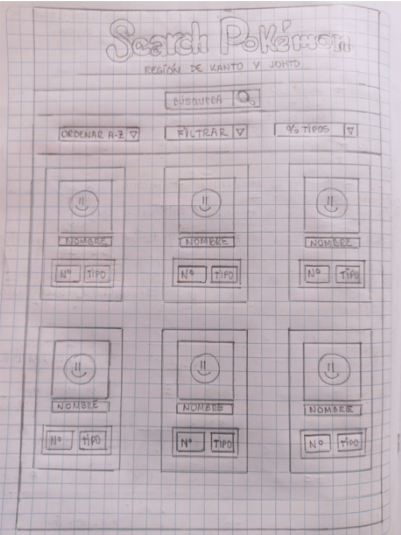 Search Pokémon
REGIÓN DE KANTO Y JOHTO
BÚSQUEDA
ORDENAR A-Z FILTRAR % TIPOS
NOMBRE NOMBRE NOMBRE
Nº TIPO Nº TIPO Nº TIPO
NOMBRE NOMBRE NOMBRE
Nº TIPO Nº TIPO Nº TIPO